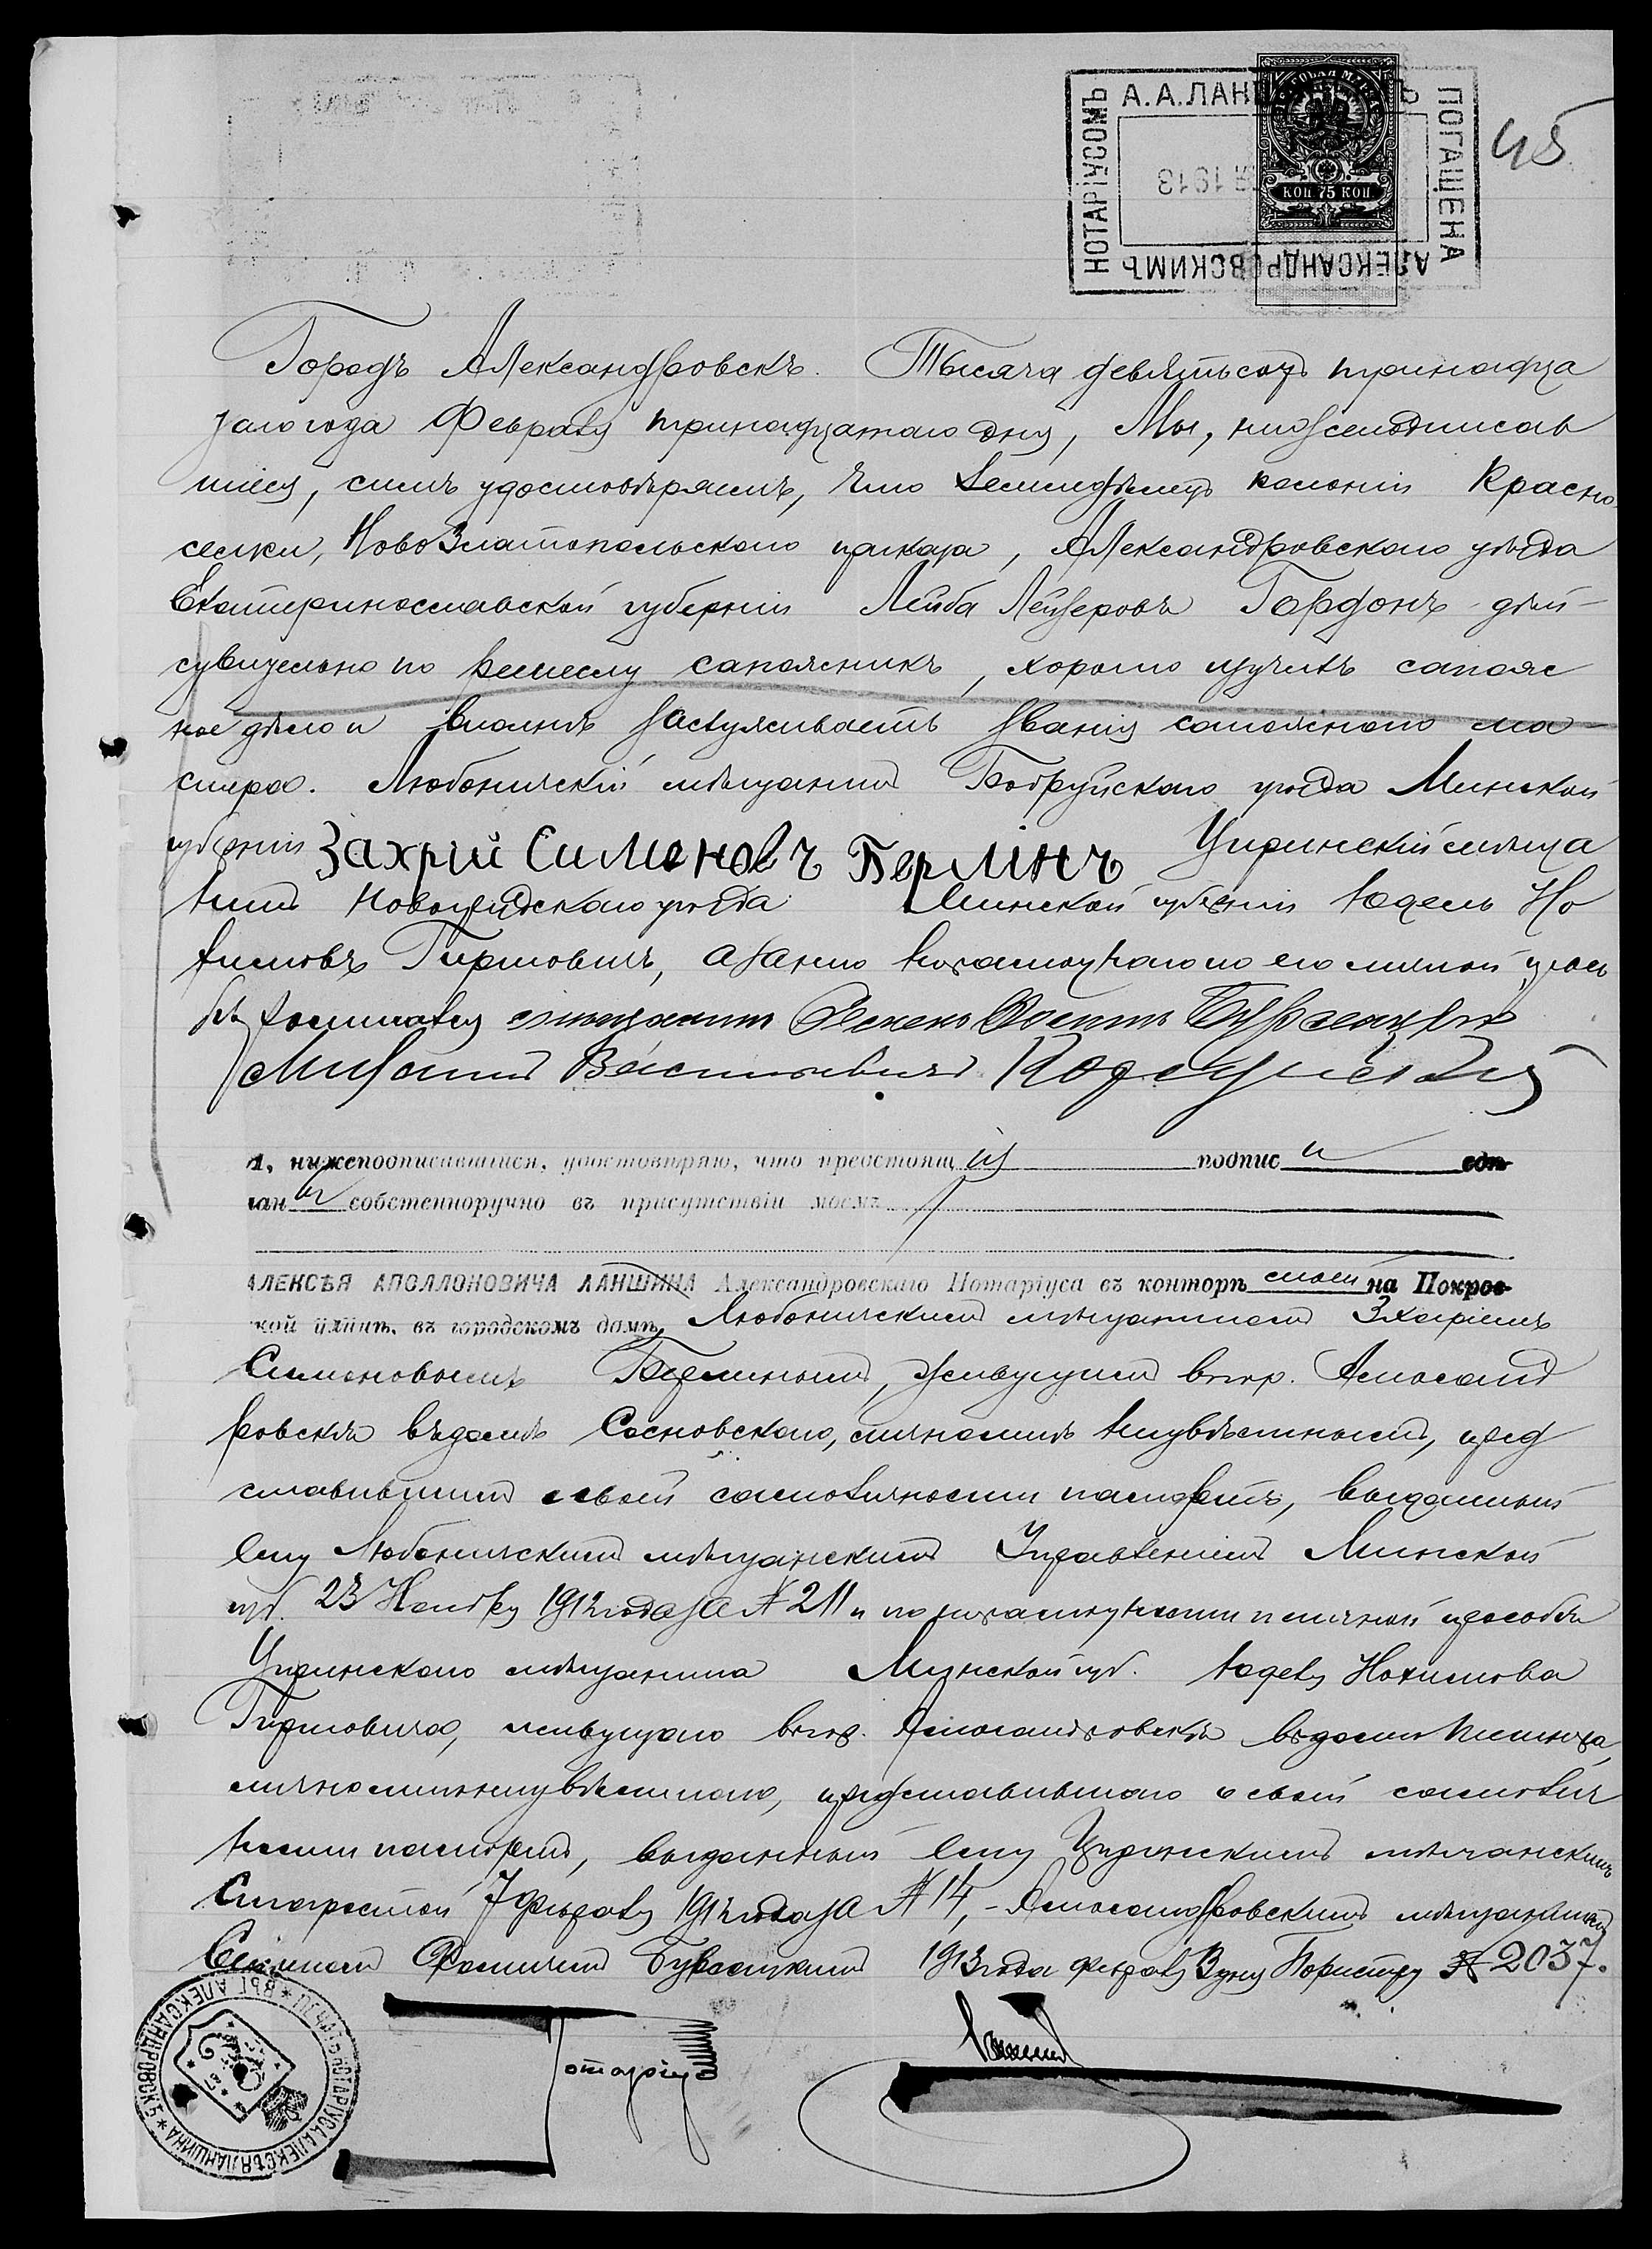 А.А.ЛАН
НОТАРІУСОМЪ
ПОГАШЕНА
АЛЕКСАНДРОВСКИМЪ
1913
КОП 75 КОП
45
Городъ Александровскъ. Тысяча девятьсотъ тринадца
таго года Февраля тринадцатаго дня, Мы, нижеподписав
шіеся, симъ удостовѣряемъ, что земледѣлецъ колоніи Красно
селки, НовоЗлатопольскаго приказа, Александровскаго уѣзда
Екатеринославской губерніи Лейба Лейзеровъ Гордонъ дѣй-
ствительно по ремеслу сапожникъ, хорошо изучилъ сапож
ное дѣло и вполнѣ заслуживаетъ званія сапожнаго ма-
стера. Любоничскій мѣщанинъ Бобруйскаго уѣзда Минской
губерніи Захрій Симоновъ Берлінъ Цыринскій мѣща
нинъ Новогрудскаго уѣзда Минской губерніи Юдель Но
химовъ Гиршовичъ, а за него неграмотнаго по его личной прось
бѣ росписался мѣщанинъ
я, нижеподписавшійся, удостовѣряю, что предстоящія подписи сдѣ
ланы собственноручно въ присутствіи моемъ
АЛЕКСѢЯ АПОЛЛОНОВИЧА ЛАНШИНА Александровскаго Нотаріуса въ конторѣ моей на Покров
ской улицѣ, въ городскомъ домѣ, Любоничскимъ мѣщаниномъ Захаріемъ
Симоновымъ Берлинымъ, живущимъ въ гор. Александ
ровскѣ въ домѣ Сосновскаго, лично мнѣ неизвѣстнымъ, пред
ставившимъ о своей самоличности паспортъ, выданный
ему Любоничскимъ мѣщанскимъ Управленіемъ Минской
губ. 23 Ноября 1912 года за № 211 и по неграмотности и личной просьбѣ
Цыринскаго мѣщанина Минской губ. Юделя Нохимова
Гиршовича, живущаго въ гор. Александровскѣ въ домѣ
лично мнѣ неизвѣстнаго, представившаго о своей самолич
ности паспортъ, выданный ему Цыринскимъ мѣщанскимъ
Старостой 7 Февраля 1912 года за № 14, - Александровскимъ мѣщаниномъ
1913 года Февраля 13 дня По реестру № 2037.
Нотаріусъ
Ланшинъ
ПЕЧАТЬ НОТАРІУСА АЛЕКСѢЯ ЛАНШИНА * ВЪ Г. АЛЕКСАНДРОВСКѢ *